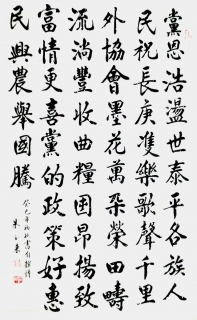 黨恩浩盪世泰平各族人
民祝長庚隻樂歌聲千里
外協會墨花萬朵榮田疇
流淌豐收曲糧囤昂揚致
富情更喜黨的政策好惠
民興農舉國騰
癸巳年初秋書自撰詩